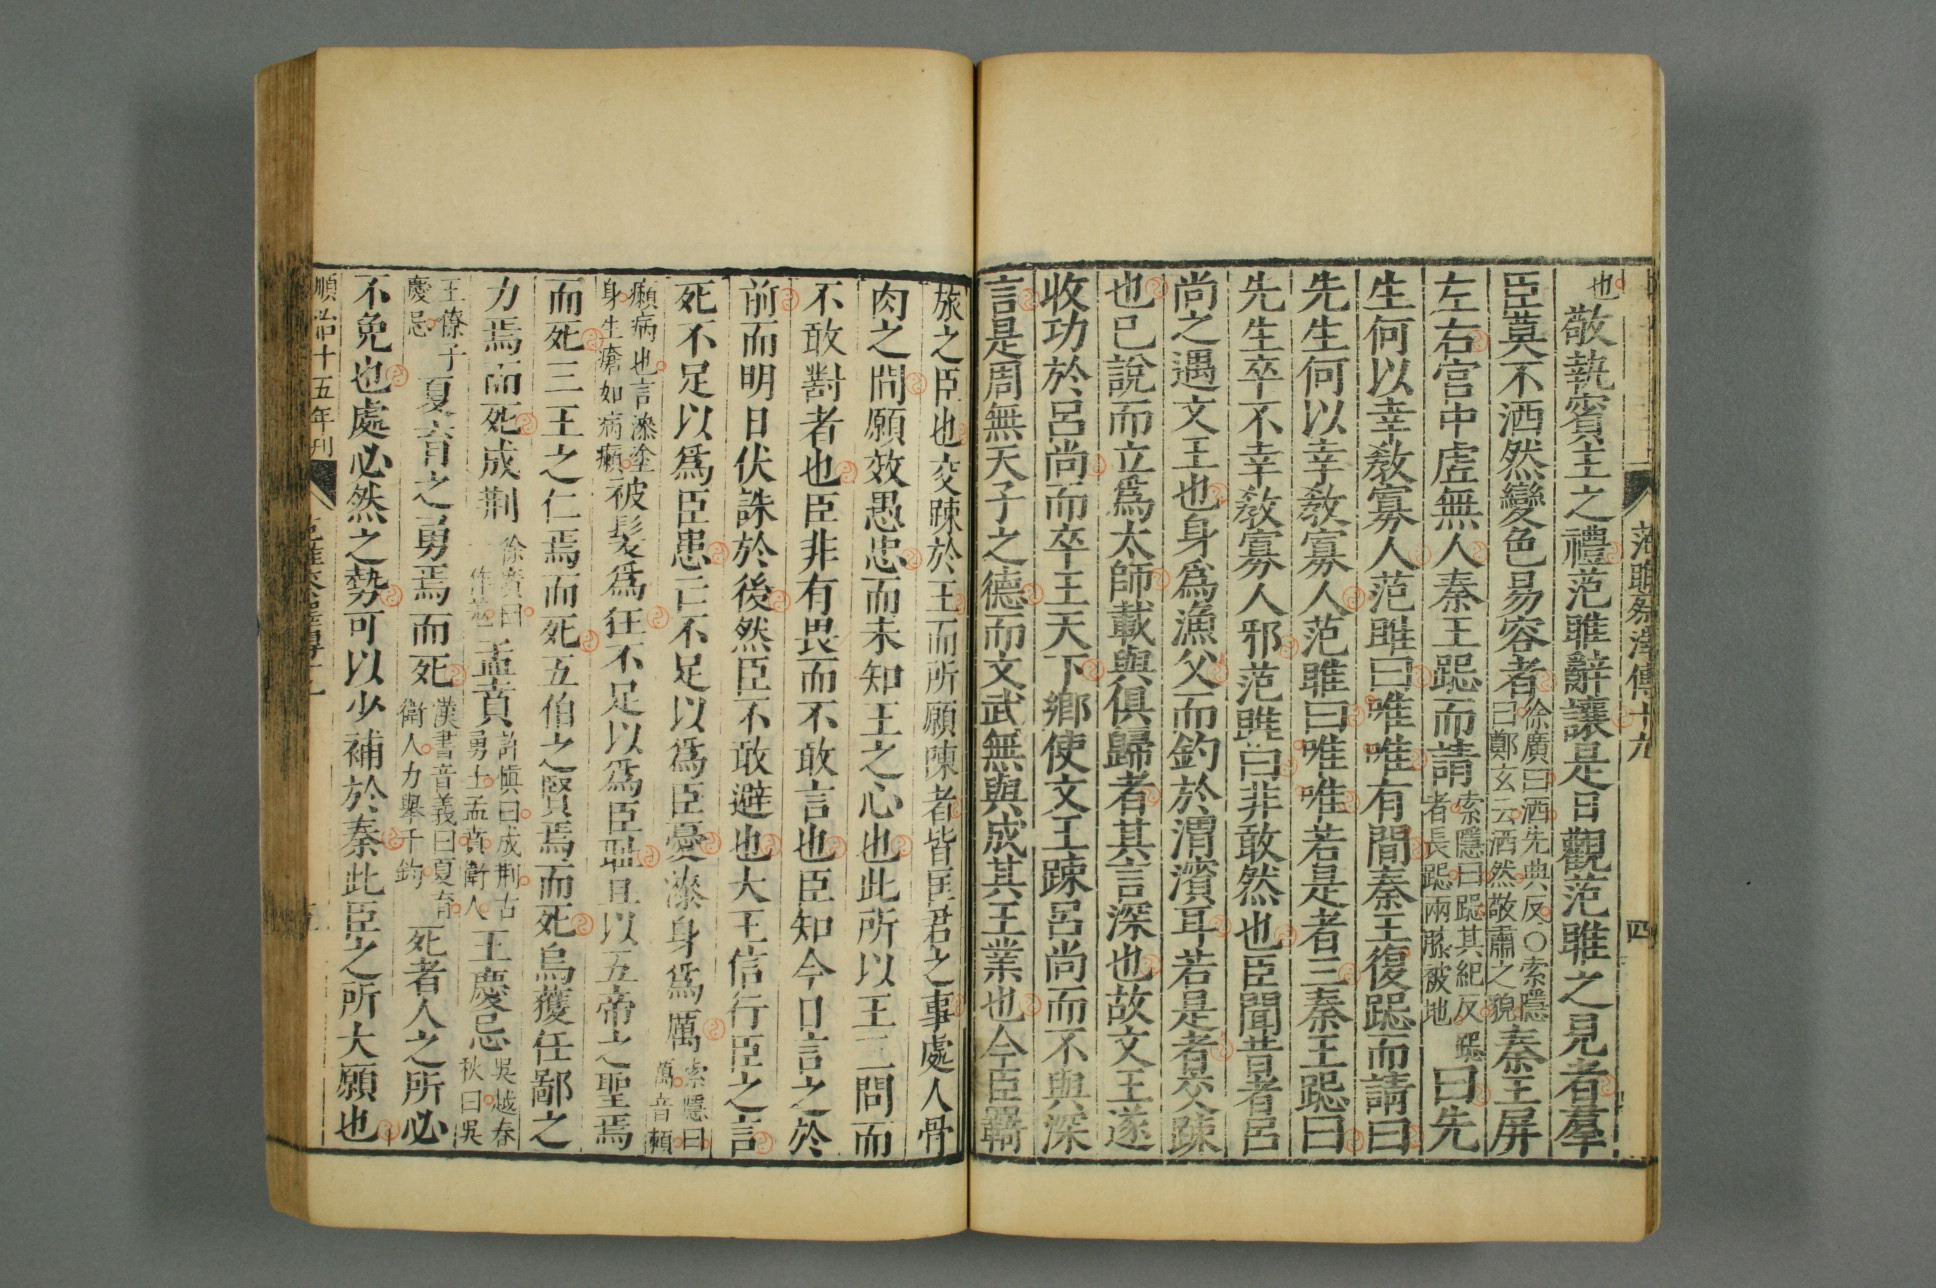 范雎蔡澤傳十九
四
也敬執賓主之禮范雎辭讓是日觀范雎之見者羣
臣莫不洒然變色易容者徐廣曰洒先典反○索隱曰鄭玄云洒然敬肅之貌秦王屏
左右宮中虛無人秦王跽而請索隱曰跽其紀反跽者長跽兩膝被地曰先
生何以幸敎寡人范雎曰唯唯有間秦王復跽而請曰
先生何以幸敎寡人范雎曰唯唯若是者三秦王跽曰
先生卒不幸敎寡人邪范雎曰非敢然也臣聞昔者呂
尚之遇文王也身爲漁父而釣於渭濱耳若是者交疎
也已說而立爲太師載與俱歸者其言深也故文王遂
收功於呂尚而卒王天下鄉使文王疎呂尚而不與深
言是周無天子之德而文武無與成其王業也今臣羇
旅之臣也交疎於王而所願陳者皆匡君之事處人骨
肉之間願效愚忠而未知王之心也此所以王三問而
不敢對者也臣非有畏而不敢言也臣知今日言之於
前而明日伏誅於後然臣不敢避也大王信行臣之言
死不足以爲臣患亡不足以爲臣憂漆身爲厲索隱曰厲音賴
癩病也言漆塗身生瘡如病癩被髮爲狂不足以爲臣恥且以五帝之聖焉
而死三王之仁焉而死五伯之賢焉而死烏獲任鄙之
力焉而死成荆徐廣曰一作羌孟賁許愼曰成荆古勇士孟賁衛人王慶忌吳越春秋曰吳
王僚子慶忌夏育之勇焉而死漢書音義曰夏育衛人力舉千鈞死者人之所必
不免也處必然之勢可以少補於秦此臣之所大願也
順治十五年刊